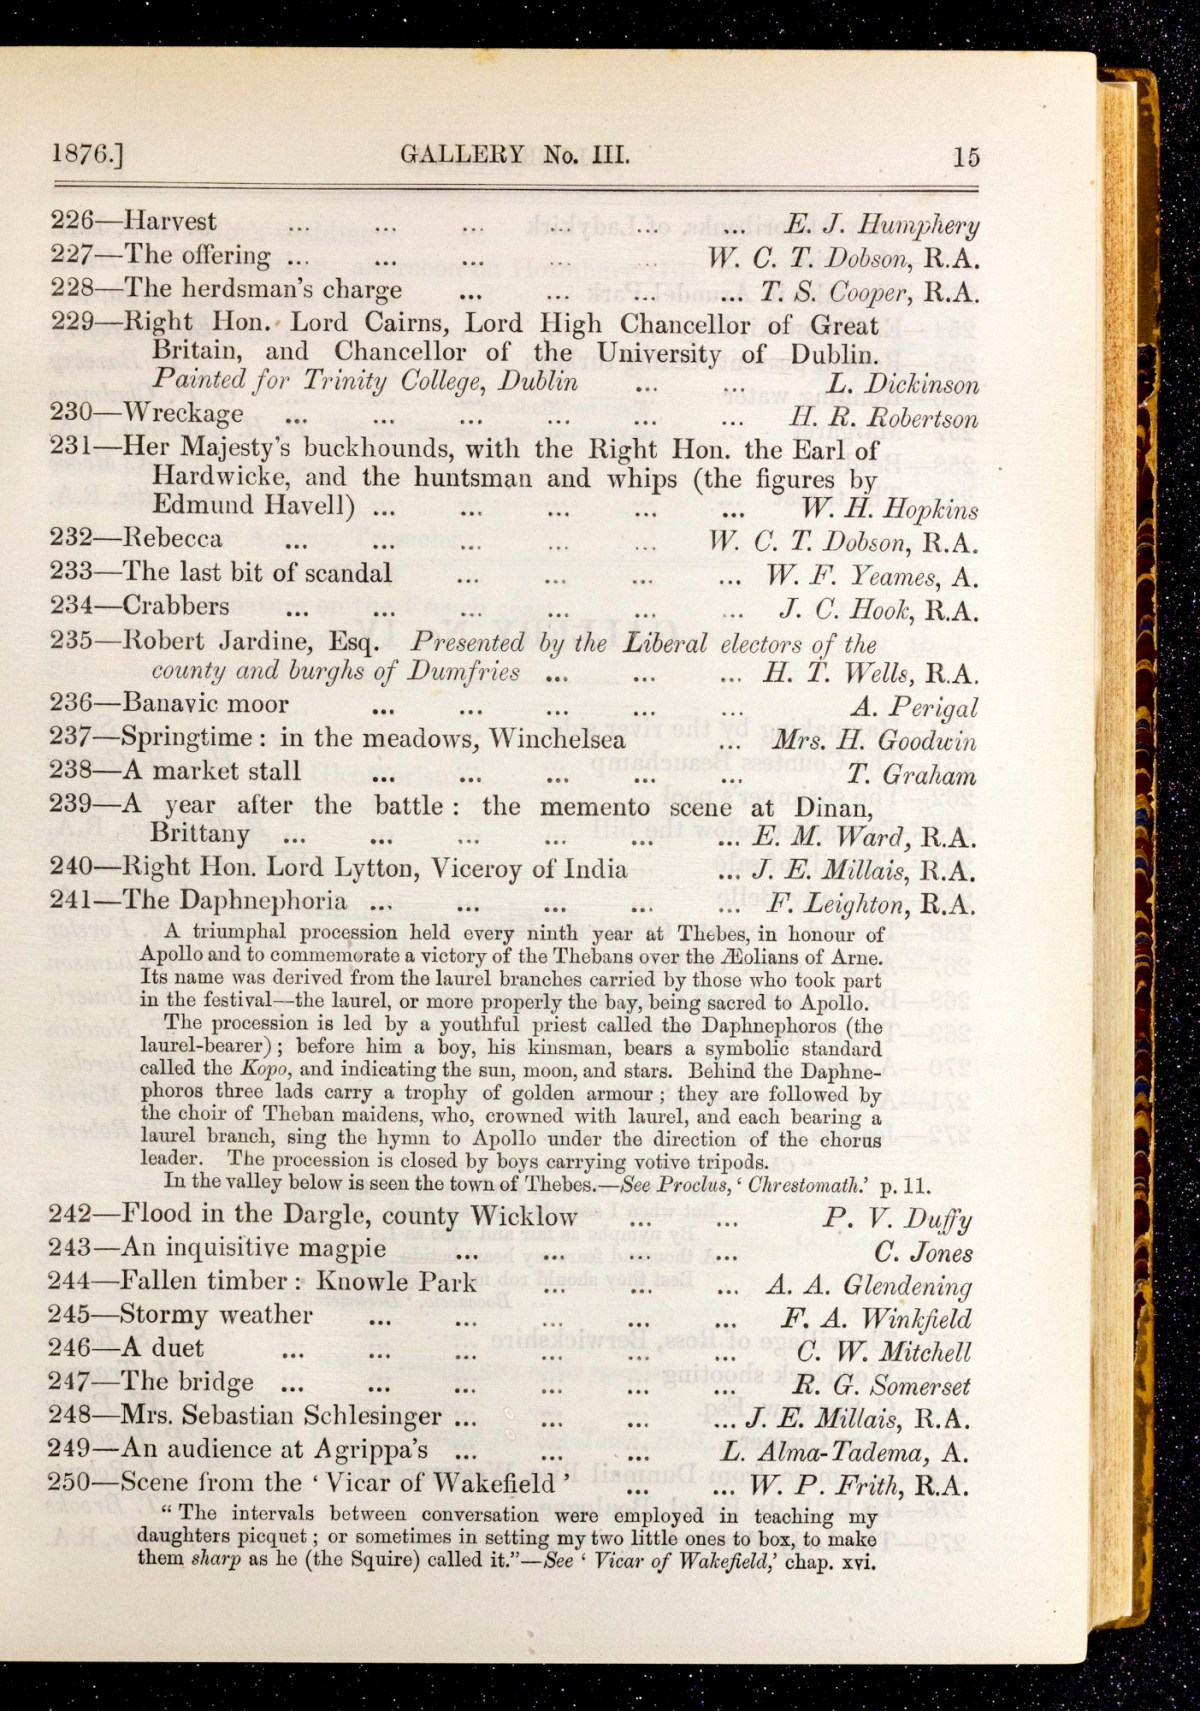 1876.] GALLERY No. III. 15
226—Harvest ... ... ... ... ... ... E. J. Humphery
227—The offering ... ... ... ... ... W. C. T. Dobson, R.A.
228—The herdsman's charge ... ... ... ... T. S. Cooper, R.A.
229—Right Hon. Lord Cairns, Lord High Chancellor of Great
Britain, and Chancellor of the University of Dublin.
Painted for Trinity College, Dublin ... ... L. Dickinson
230—Wreckage ... ... ... ... ... ... H. R. Robertson
231—Her Majesty's buckhounds, with the Right Hon. the Earl of
Hardwicke, and the huntsman and whips (the figures by
Edmund Havell) ... ... ... ... ... W. H. Hopkins
232—Rebecca ... ... ... ... ... W. C. T. Dobson, R.A.
233—The last bit of scandal ... ... ... ... W. F. Yeames, A.
234—Crabbers ... ... ... ... ... ... J. C. Hook, R.A.
235—Robert Jardine, Esq. Presented by the Liberal electors of the
county and burghs of Dumfries ... ... ... H. T. Wells, R.A.
236—Banavic moor ... ... ... ... ... A. Perigal
237—Springtime : in the meadows, Winchelsea ... Mrs. H. Goodwin
238—A market stall ... ... ... ... ... T. Graham
239—A year after the battle : the memento scene at Dinan,
Brittany ... ... ... ... ... ... E. M. Ward, R.A.
240—Right Hon. Lord Lytton, Viceroy of India ... J. E. Millais, R.A.
241—The Daphnephoria ... ... ... ... ... F. Leighton, R.A.
A triumphal procession held every ninth year at Thebes, in honour of
Apollo and to commemorate a victory of the Thebans over the Æolians of Arne.
Its name was derived from the laurel branches carried by those who took part
in the festival—the laurel, or more properly the bay, being sacred to Apollo.
The procession is led by a youthful priest called the Daphnephoros (the
laurel-bearer) ; before him a boy, his kinsman, bears a symbolic standard
called the Kopo, and indicating the sun, moon, and stars. Behind the Daphne-
phoros three lads carry a trophy of golden armour ; they are followed by
the choir of Theban maidens, who, crowned with laurel, and each bearing a
laurel branch, sing the hymn to Apollo under the direction of the chorus
leader. The procession is closed by boys carrying votive tripods.
In the valley below is seen the town of Thebes.—See Proclus, ‘ Chrestomath.’ p. 11.
242—Flood in the Dargle, county Wicklow ... ... P. V. Duffy
243—An inquisitive magpie ... ... ... ... C. Jones
244—Fallen timber : Knowle Park ... ... ... A. A. Glendening
245—Stormy weather ... ... ... ... ... F. A. Winkfield
246—A duet ... ... ... ... ... ... C. W. Mitchell
247—The bridge ... ... ... ... ... ... R. G. Somerset
248—Mrs. Sebastian Schlesinger ... ... ... ... J. E. Millais, R.A.
249—An audience at Agrippa's ... ... ... L. Alma-Tadema, A.
250—Scene from the ‘ Vicar of Wakefield ’ ... ... W. P. Frith, R.A.
“ The intervals between conversation were employed in teaching my
daughters picquet ; or sometimes in setting my two little ones to box, to make
them sharp as he (the Squire) called it.”—See ‘ Vicar of Wakefield,’ chap. xvi.